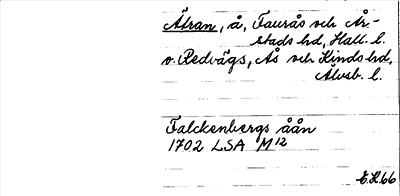 Ätran, å, Faurås och År-
stads hd, Hall. l.
o. Redvägs, Ås och Kinds hd,
Älvsb. l.
Falckenbergs åån
1702 LSA M12
E.H. 66